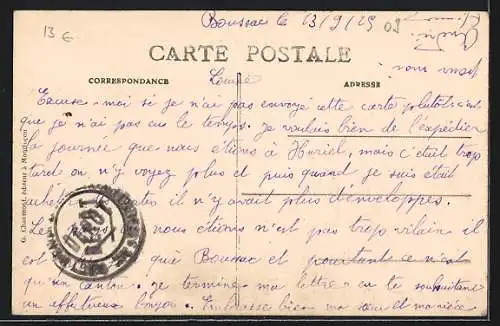 13 €
Boussac le 13/9/29
09
CARTE POSTALE
CORRESPONDANCE
ADRESSE
Excuse-moi si je n'ai pas envoyé cette carte plutôt c'est
que je n'ai pas eu le temps. Je voulais bien de l'expédier
la journée que nous étions à Huriel, mais c'était trop
tard on n'y voyez plus et puis quand je suis était
plus d'enveloppes.
nous étions n'est pas trop vilain il
est que Boussac et pourtant ce n'est
qu'un canton. Je termine ma lettre en te souhaitant
un affectueux bonjour. Embrasse bien ma
G. Chaumont, éditeur à Montluçon